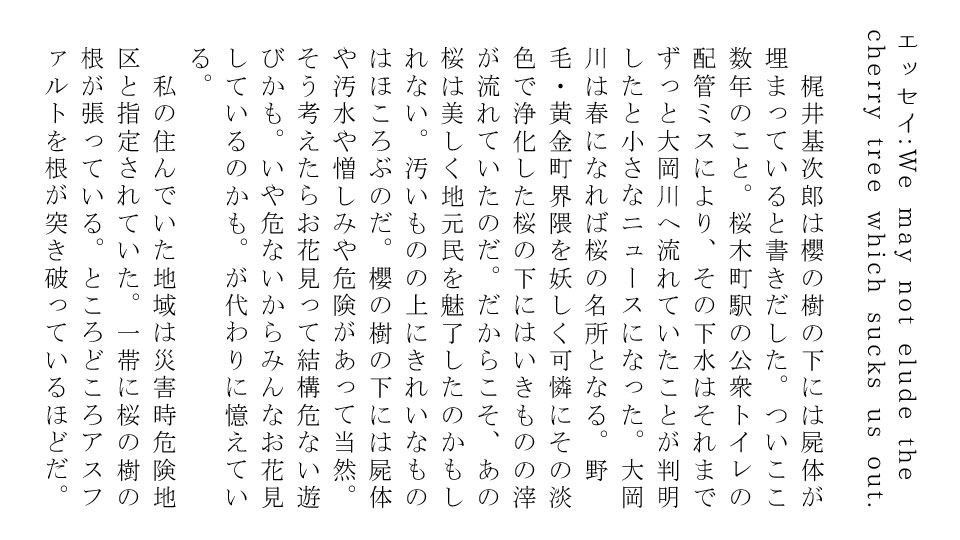 エッセイ:We may not elude the
cherry tree which sucks us out.
梶井基次郎は櫻の樹の下には屍体が
埋まっていると書きだした。ついここ
数年のこと。桜木町駅の公衆トイレの
配管ミスにより、その下水はそれまで
ずっと大岡川へ流れていたことが判明
したと小さなニュースになった。大岡
川は春になれば桜の名所となる。野
毛・黄金町界隈を妖しく可憐にその淡
色で浄化した桜の下にはいきものの滓
が流れていたのだ。だからこそ、あの
桜は美しく地元民を魅了したのかもし
れない。汚いものの上にきれいなもの
はほころぶのだ。櫻の樹の下には屍体
や汚水や憎しみや危険があって当然。
そう考えたらお花見って結構危ない遊
びかも。いや危ないからみんなお花見
しているのかも。が代わりに憶えてい
る。
私の住んでいた地域は災害時危険地
区と指定されていた。一帯に桜の樹の
根が張っている。ところどころアスフ
ァルトを根が突き破っているほどだ。